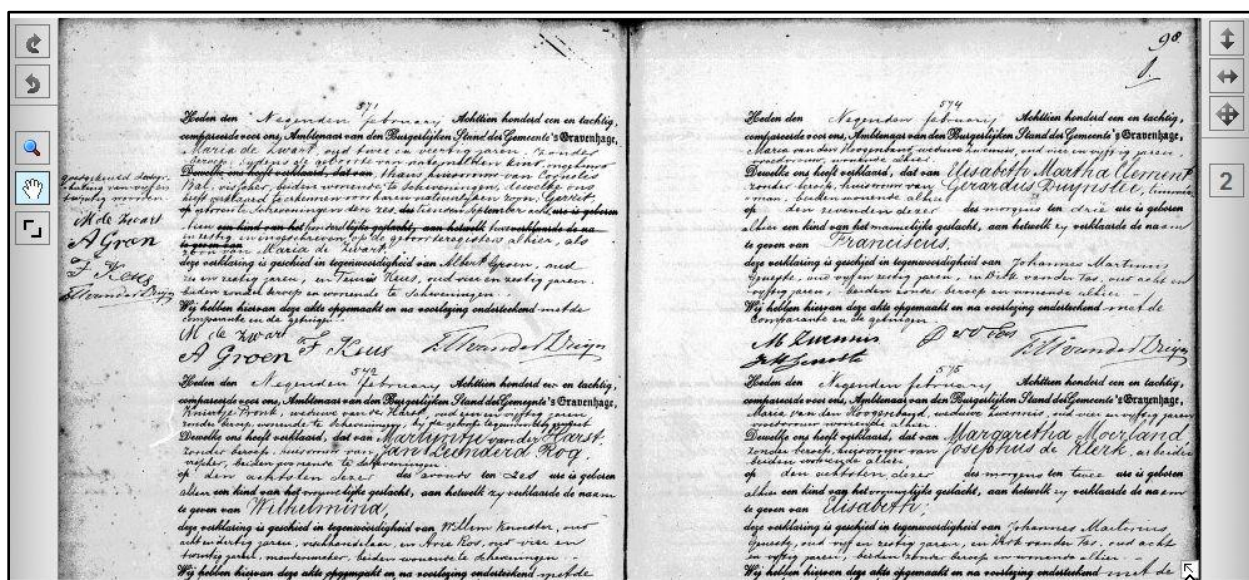 98
571
Heden den Negenden february Achttien honderd een en tachtig,
compareerde voor ons, Ambtenaar van den Burgerlijken Stand der Gemeente 's Gravenhage,
Maria de Zwart, oud twee en veertig jaren, zonder
beroep, tijdens de geboorte van natemelden kind, meerdere
Dewelke ons heeft verklaard, dat van thans huisvrouw van Cornelis
Bal, visscher, beiden wonende te Scheveningen, dewelke ons
heeft verklaard te erkennen voor haren natuurlijken zoon, Gerrit,
geboren te Scheveningen den zes des tienden September acht ure is geboren
tien een kind van het geslacht, aan hetwelk verklaarde de na
te geven van en ingeschreven op de geboorteregisters alhier, als
zoon van Maria de Zwart
deze verklaring is geschied in tegenwoordigheid van Albert Groen, oud
zes en zestig jaren, en Teunis Keus, oud vier en zestig jaren,
beiden zonder beroep en wonende te Scheveningen.
Wij hebben hiervan deze akte opgemaakt en na voorlezing onderteekend met de
comparante en de getuigen.
M de Zwart
A Groen F Keus
goedgekeurd
van vijf en
twintig woorden
M de Zwart
A Groen
F Keus
572
Heden den Negenden february Achttien honderd een en tachtig,
compareerde voor ons, Ambtenaar van den Burgerlijken Stand der Gemeente 's Gravenhage,
Knirtje Pronk, weduwe van der Harst, oud en vijftig jaren
zonder beroep, wonende te Scheveningen, bij de geboorte tegenwoordig geweest
Dewelke ons heeft verklaard, dat van Martijntje van der Harst
zonder beroep, huisvrouw van Jan Leenderd Rog,
visscher, beiden wonende te Scheveningen.
op den achtsten dezer des avonds ten zes ure is geboren
alhier een kind van het vrouwelijke geslacht, aan hetwelk zy verklaarde de naam
te geven van Wilhelmina,
deze verklaring is geschied in tegenwoordigheid van Willem Knoester, oud
acht en dertig jaren, vischhandelaar, en Arie Ros, oud vier en
twintig jaren, mandenmaker, beiden wonende te Scheveningen.
Wij hebben hiervan deze akte opgemaakt en na voorlezing onderteekend met de
574
Heden den Negenden february Achttien honderd een en tachtig,
compareerde voor ons, Ambtenaar van den Burgerlijken Stand der Gemeente 's Gravenhage,
Maria van den Hoogenband, weduwe Zwennis, oud vier en vijftig jaren,
vroedvrouw, wonende alhier.
Dewelke ons heeft verklaard, dat van Elisabeth Martha Clement
zonder beroep, huisvrouw van Gerardus Duynstee, timmer
man, beiden wonende alhier
op den zevenden dezer des morgens ten drie ure is geboren
alhier een kind van het mannelijke geslacht, aan hetwelk zy verklaarde de naam
te geven van Franciscus,
deze verklaring is geschied in tegenwoordigheid van Johannes Martinus
oud vijf en zestig jaren, en Dirk van der Tas, oud acht en
vijftig jaren, beiden zonder beroep en wonende alhier.
Wij hebben hiervan deze akte opgemaakt en na voorlezing onderteekend met de
Comparante en de getuigen.
M Zwennis D vd Tas
575
Heden den Negenden february Achttien honderd een en tachtig,
compareerde voor ons, Ambtenaar van den Burgerlijken Stand der Gemeente 's Gravenhage,
Maria van den Hoogenband, weduwe Zwennis, oud vier en vijftig jaren
vroedvrouw, wonende alhier.
Dewelke ons heeft verklaard, dat van Margaretha Moerland
zonder beroep, huisvrouw van Josephus de Klerk, arbeider
beiden wonende alhier
op den achtsten dezer des morgens ten twee ure is geboren
alhier een kind van het vrouwelijke geslacht, aan hetwelk zy verklaarde de naam
te geven van Elisabeth,
deze verklaring is geschied in tegenwoordigheid van Johannes Martinus
oud vijf en zestig jaren, en Dirk van der Tas, oud acht
en vijftig jaren, beiden zonder beroep en wonende alhier.
Wij hebben hiervan deze akte opgemaakt en na voorlezing onderteekend met de
2